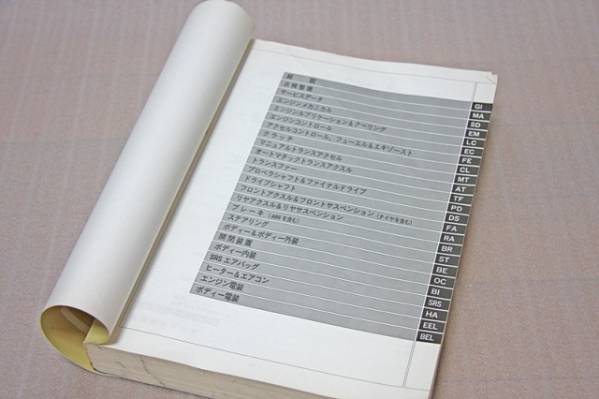 総説 GI
点検整備 MA
サービスデータ SD
エンジンメカニカル EM
エンジンルブリケーション&クーリング LC
エンジンコントロール EC
アクセルコントロール、フューエル&エキゾースト FE
クラッチ CL
マニュアルトランスアクセル MT
オートマチックトランスアクスル AT
トランスファー TF
プロペラシャフト&ファイナルドライブ PD
ドライブシャフト DS
フロントアクスル&フロントサスペンション(タイヤを含む) FA
リヤアクスル&リヤサスペンション RA
ブレーキ(ABSを含む) BR
ステアリング ST
ボディー&ボディー外装 BE
開閉装置 OC
ボディー内装 BI
SRSエアバッグ SRS
ヒーター&エアコン HA
エンジン電装 EEL
ボディー電装 BEL